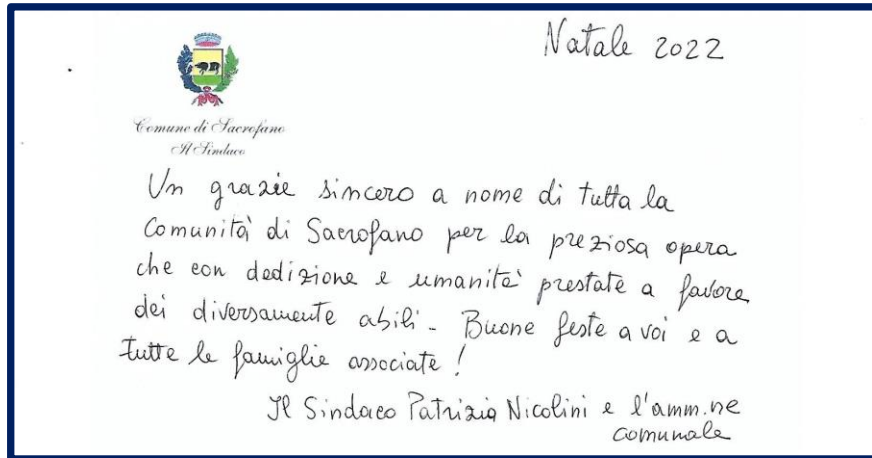 Natale 2022
Comune di Sacrofano
Il Sindaco
Un grazie sincero a nome di tutta la
Comunità di Sacrofano per la preziosa opera
che con dedizione e umanità prestate a favore
dei diversamente abili - Buone feste a voi e a
tutte le famiglie associate !
Il Sindaco Patrizia Nicolini e l'amm.ne
comunale